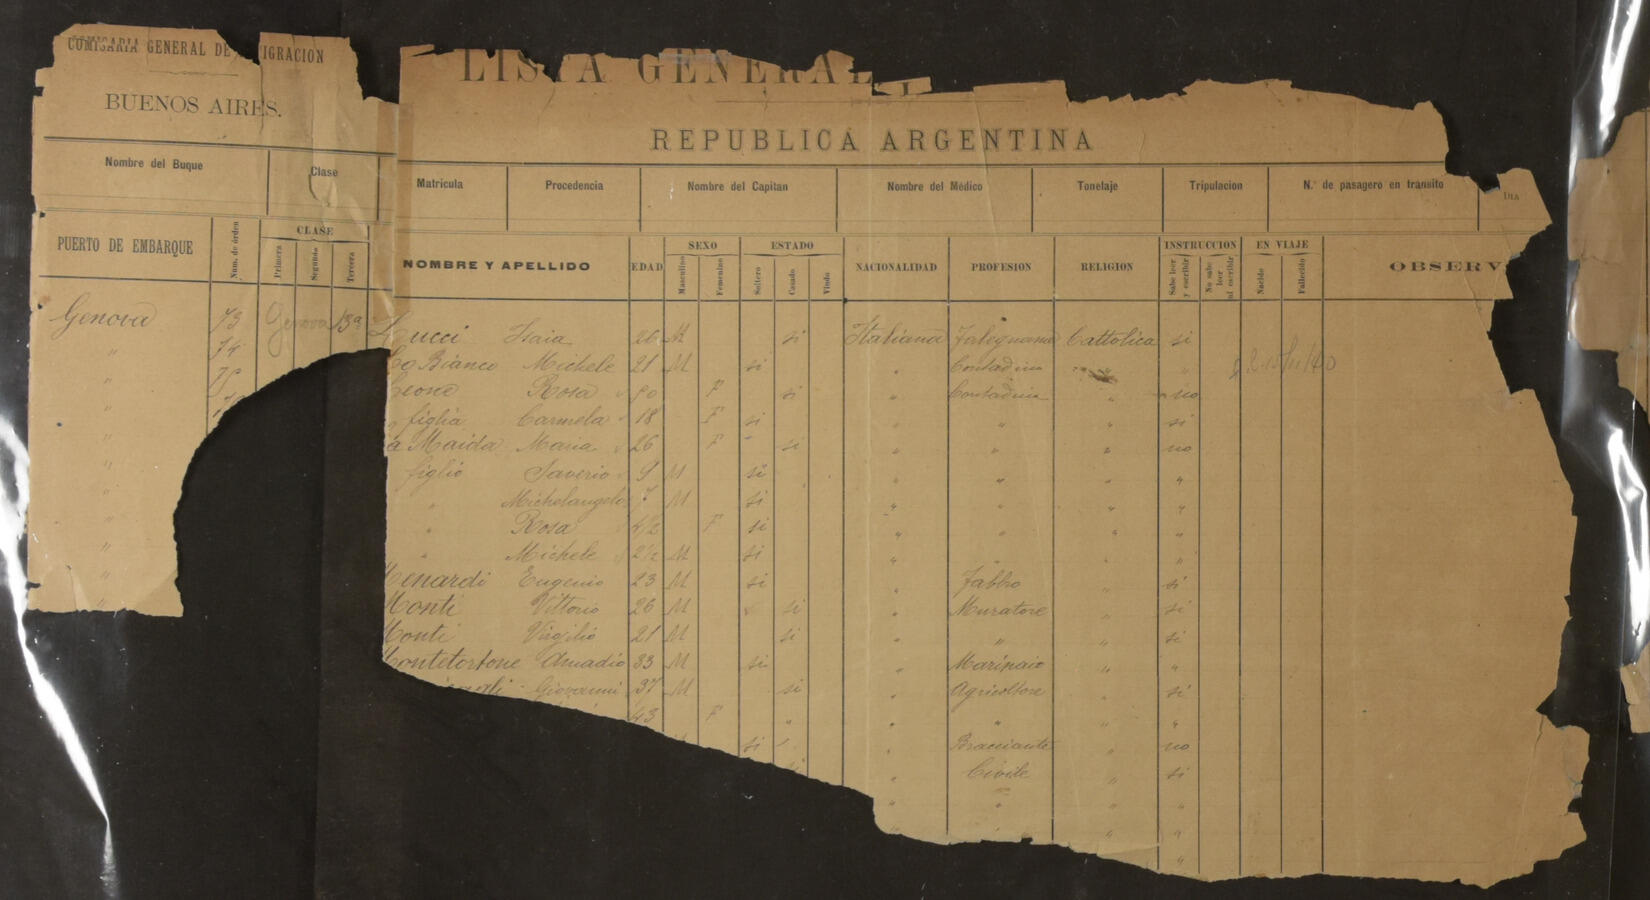 COMISARIA GENERAL DE IGRACION
BUENOS AIRES.
LISTA GENERAL
REPUBLICA ARGENTINA
Nombre del Buque Clase Matricula Procedencia Nombre del Capitan Nombre del Médico Tonelaje Tripulacion N.º de pasagero en tránsito DIA
PUERTO DE EMBARQUE Num. de órden CLASE Primera Segunda Tercera NOMBRE Y APELLIDO EDAD SEXO Masculino Femenino ESTADO Soltero Casado Viudo NACIONALIDAD PROFESION RELIGION INSTRUCCION Sabe leer y escribir No sabe leer ni escribir EN VIAJE Nacido Fallecido OBSERV
Genova 73 Genova 3ª Lucci Isaia 26 M si Italiana Falegname Cattolica si
" 74 Lo Bianco Michele 21 M si " Contadino "
" 75 Leone Rosa F si " Contadina " no
" figlia Carmela 18 F si " " " si
" a Maida Maria 26 F si " " " no
" figlio Saverio 9 M si " " " "
" " Michelangelo 7 M si " " " "
" " Rosa 4½ F si " " " "
" " Michele 2½ M si " " " "
" Menardi Eugenio 23 M si " Fabbro " si
" Monti Vittorio 26 M si " Muratore " si
Monti Virgilio 21 M si " " " si
Montetortone Amadio 33 M si " Marinaio " "
Giovanni 37 M si " Agricoltore " si
43 F " " " " "
si " Bracciante " no
si " Civile " si
" " " "
" " " "
"